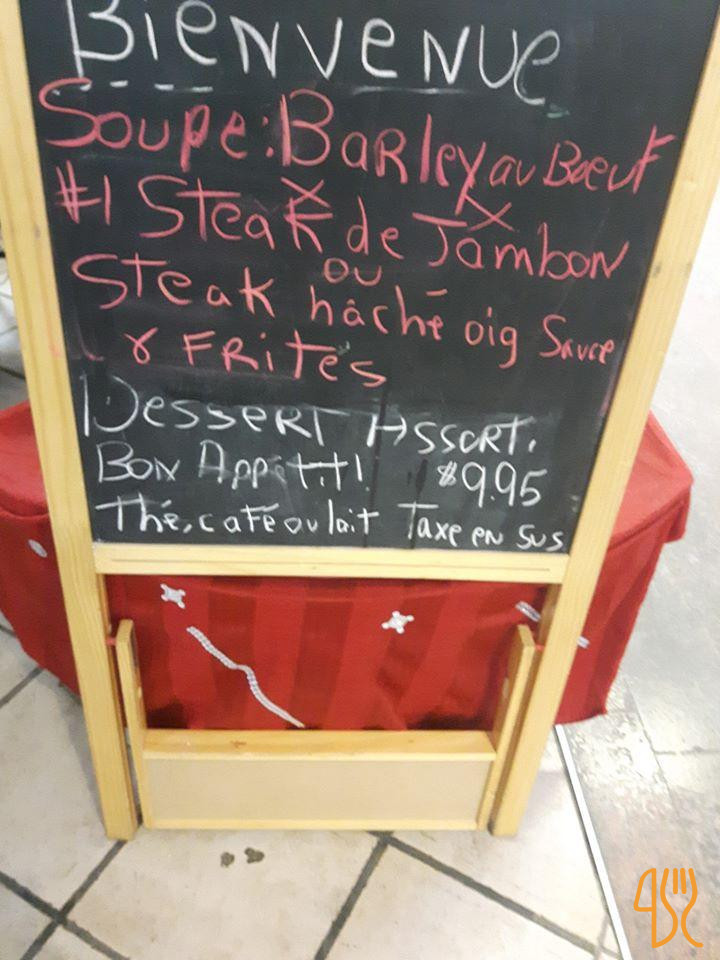 Bienvenue
Soupe: Barley au Boeuf
#1 Steak de Jambon
ou
Steak hâché oig Sauce
& Frites
Dessert Assort.
Bon Appétit! $9.95
Thé, café ou lait Taxe en sus